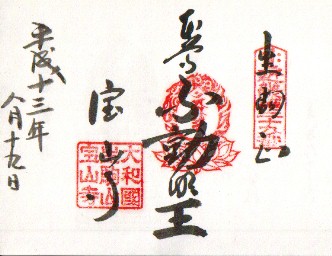 生駒山
奉拝
不動明王
宝山寺
大和國
生駒山
宝山寺
平成十三年
八月十九日